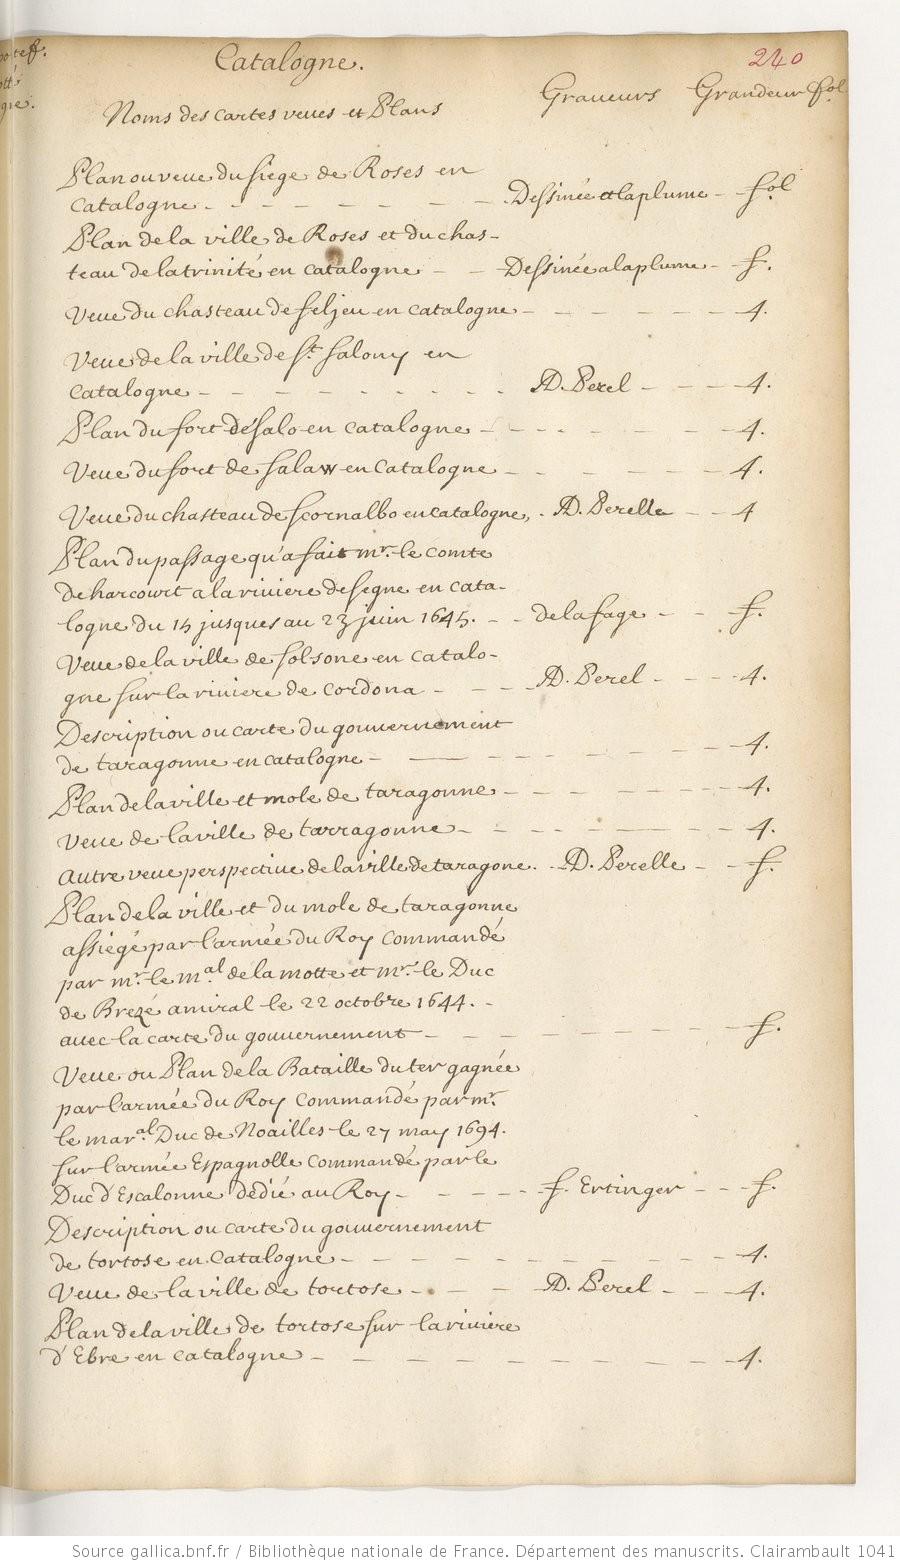 Catalogne.
240
Noms des cartes veues et Plans
Graveurs
Grandeur fol.
Plan ou veue du siege de Roses en
Catalogne - Dessinée a la plume - fol
Plan de la ville de Roses et du chas-
teau de la trinité en catalogne - Dessinée a la plume - f.
Veue du chasteau de seljeu en catalogne - 4.
Veue de la ville de St. Salony en
Catalogne - AD. Perel - 4.
Plan du fort de salo en catalogne - 4.
Veue du fort de salaw en Catalogne - 4.
Veue du chasteau de scornalbo en catalogne, . AD. Perelle - 4
Plan du passage qu'a fait mr. le comte
de harcourt a la riviere de segne en cata-
logne du 14 jusques au 23 juin 1645. - de la fage - f.
Veue de la ville de solsone en catalo-
gne sur la riviere de cordona - AD. Perel - 4.
Description ou carte du gouvernement
de taragonne en catalogne - 4.
Plan de la ville et mole de taragonne - 4.
Veue de la ville de tarragonne - 4.
autre veue perspective de la ville de taragone. - AD. Perelle - f.
Plan de la ville et du mole de taragonne
assiegé par l'armée du Roy commandé
par mr. le mal. de la motte et mr. le Duc
de Brezé amiral le 22 octobre 1644. -
avec la carte du gouvernement - f.
Veue ou Plan de la Bataille du ter gagnée
par l'armée du Roy commandé par mr.
le maral. Duc de Noailles le 27 may 1694.
sur l'armée Espagnolle commandé par le
Duc d'Escalonne dedié au Roy - f. Ertinger - f.
Description ou carte du gouvernement
de tortose en Catalogne - 4.
Veue de la ville de tortose - AD. Perel - 4.
Plan de la ville de tortose sur la riviere
d'Ebre en catalogne - 4.
Source gallica.bnf.fr / Bibliothèque nationale de France. Département des manuscrits. Clairambault 1041